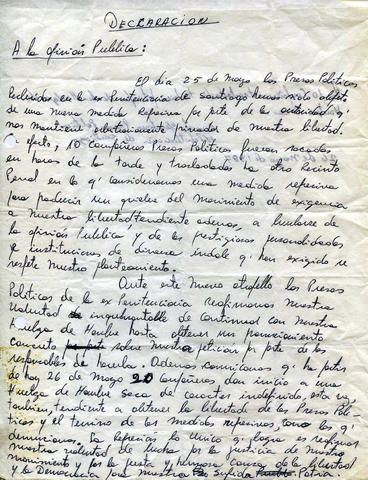 DECLARACION
A la opinión Publica:
El día 25 de Mayo los Presos Políticos
Recluidos en la ex Penitenciaria de santiago hemos sido objeto
de una nueva medida represiva por parte de la autoridad q'
nos mantiene privados de nuestra libertad.
En efecto, 10 compañeros Presos Politicos fueron sacados
en horas de la tarde y trasladados ha otro Recinto
Penal en lo q' consideramos una medida represiva
para producir un quiebre del movimiento de exigencia
a nuestra libertad, tendiente ademas, a burlarse de
la opinión Publica y de las prestigiosas personalidades
e instituciones de diversa indole q' han exigido se
respete nuestro planteamiento.
Ante este nuevo atropello los Presos
Politicos de la ex Penitenciaria reafirmamos nuestra
voluntad inquebrantable de continuar con nuestra
Huelga de Hambre hasta obtener un pronunciamiento
concreto sobre nuestra petición por parte de los
responsables de . Ademas comunicamos q' ha partir
de hoy 26 de Mayo 20 compañeros dan inicio a una
Huelga de Hambre seca de caracter indefinido, esta va,
tambien, tendiente a obtener la libertad de los Presos Poli-
ticos y el termino de las medidas represivas, como las q'
denunciamos. La represion lo unico q' logra es reafirmar
nuestra voluntad de lucha por la justicia de nuestro
movimiento y por la justa y hermosa causa de la libertad
y la Democracia para nuestra Patria